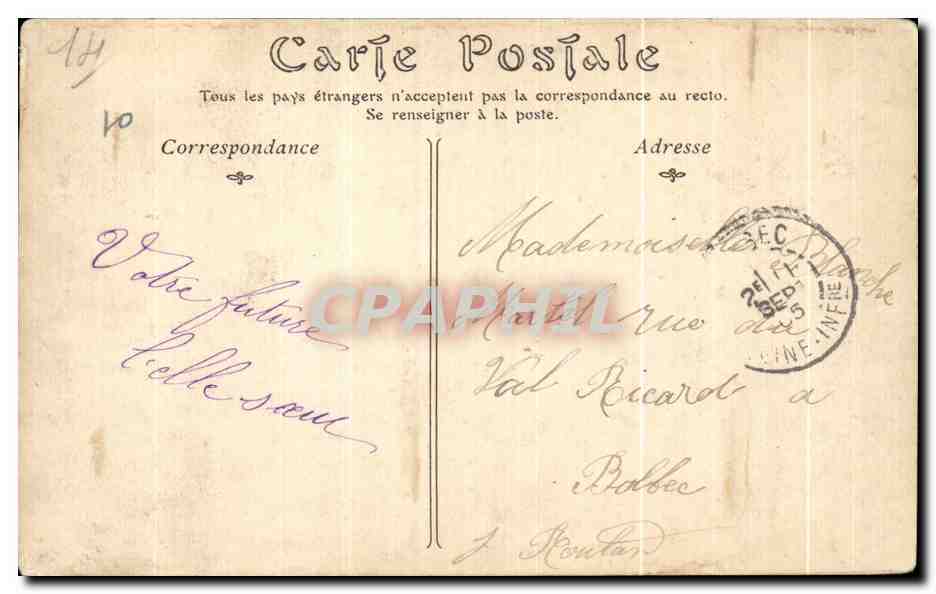 14
10
Carte Postale
Tous les pays étrangers n'acceptent pas la correspondance au recto.
Se renseigner à la poste.
Correspondance
Adresse
Votre future
belle sœur
Mademoiselle Blanche
Martel rue du
Val Ricard a
Bolbec
BEC
2E
SEPT
05
SEINE-INFRE
CPAPHIL